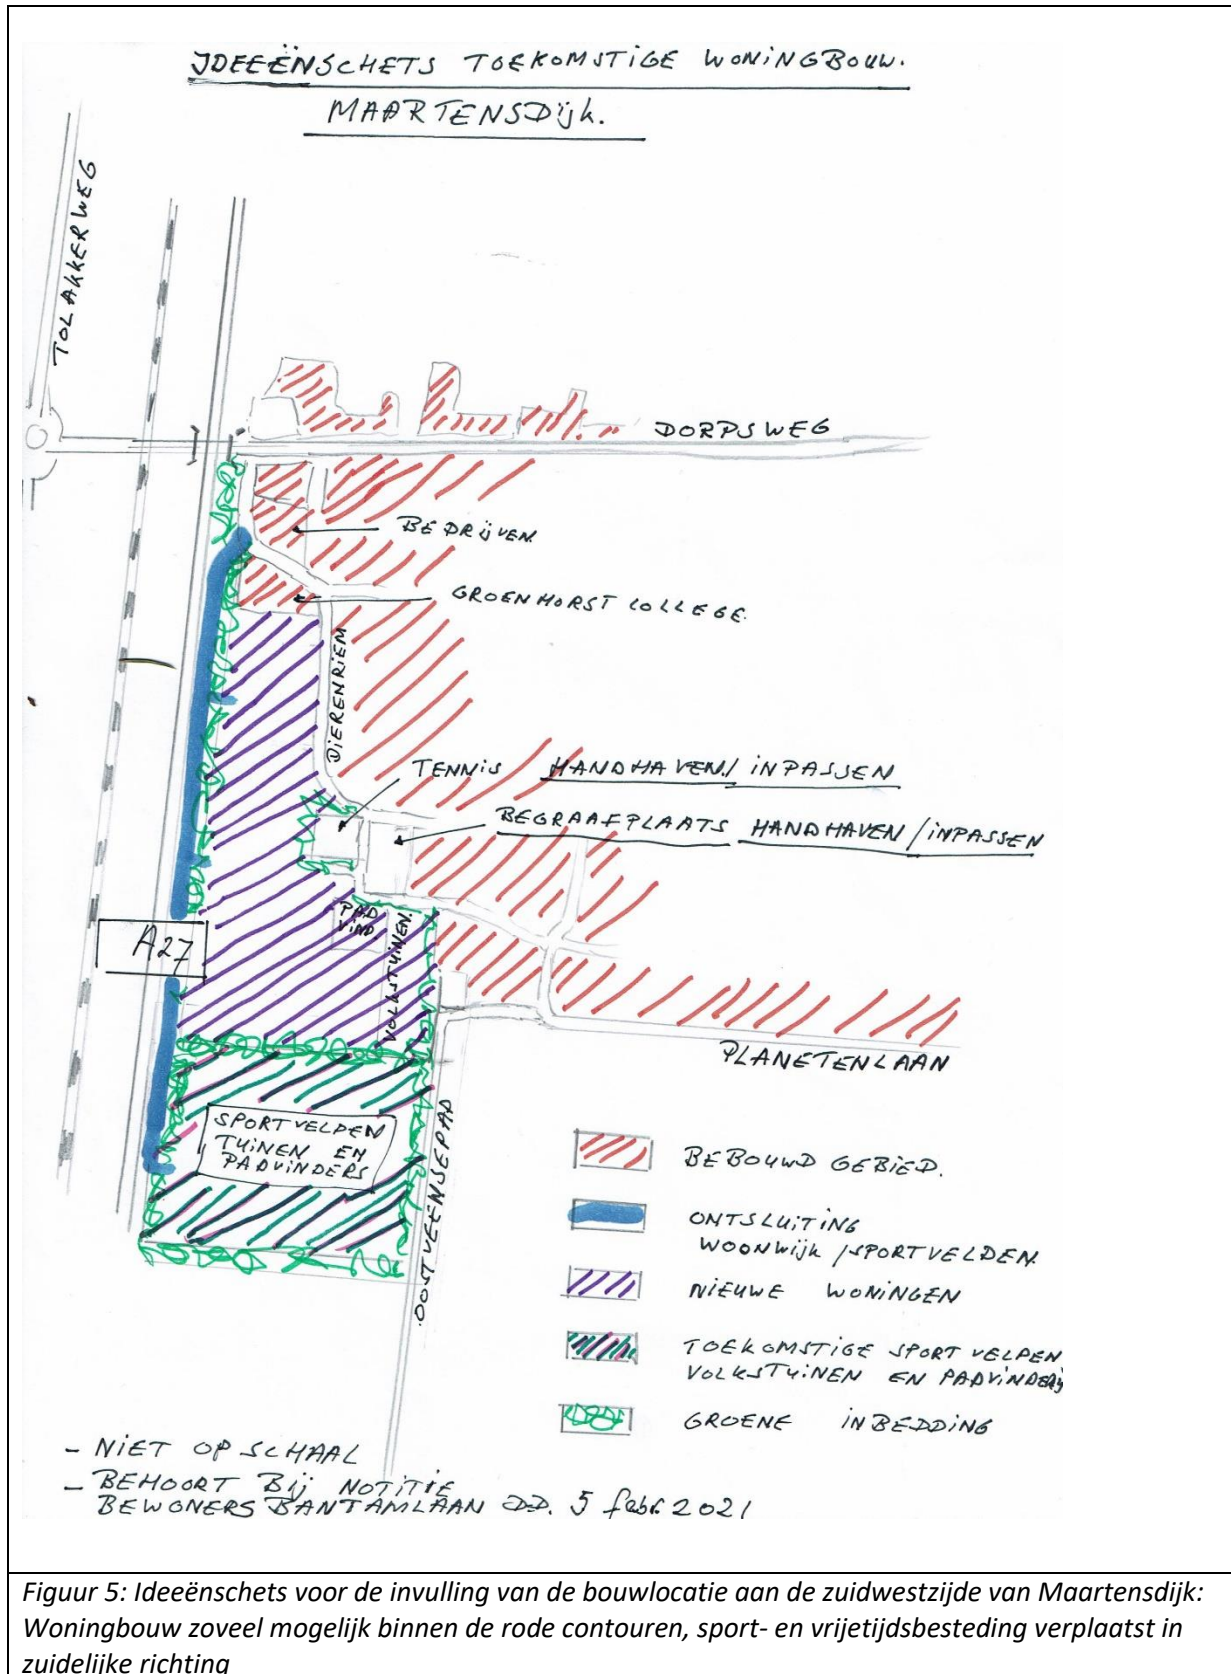 IDEEËNSCHETS TOEKOMSTIGE WONINGBOUW.
MAARTENSDIJK.
TOLAKKERWEG
DORPSWEG
BEDRIJVEN
GROENHORST COLLEGE.
DIERENRIEM
TENNIS HANDHAVEN/INPASSEN
BEGRAAFPLAATS HANDHAVEN/INPASSEN
PAD
VIND.
VOLKSTUINEN.
A27
PLANETENLAAN
SPORTVELDEN
TUINEN EN
PADVINDERS
OOSTVEENSEPAD
BEBOUWD GEBIED.
ONTSLUITING
WOONWIJK/SPORTVELDEN.
NIEUWE WONINGEN
TOEKOMSTIGE SPORTVELDEN
VOLKSTUINEN EN PADVINDERIJ
GROENE INBEDDING
- NIET OP SCHAAL
- BEHOORT BIJ NOTITIE
BEWONERS BANTAMLAAN D.D. 5 febr. 2021
Figuur 5: Ideeënschets voor de invulling van de bouwlocatie aan de zuidwestzijde van Maartensdijk:
Woningbouw zoveel mogelijk binnen de rode contouren, sport- en vrijetijdsbesteding verplaatst in
zuidelijke richting